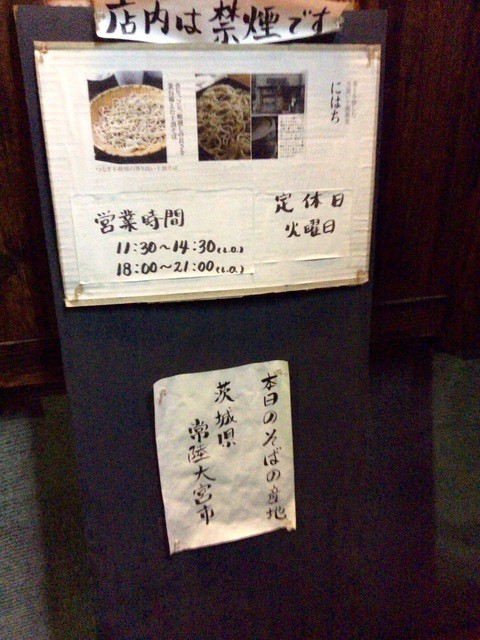 店内は禁煙です
にはち
営業時間
11:30～14:30(L.O.)
18:00～21:00(L.O.)
定休日
火曜日
本日のそばの産地
茨城県
常陸大宮市